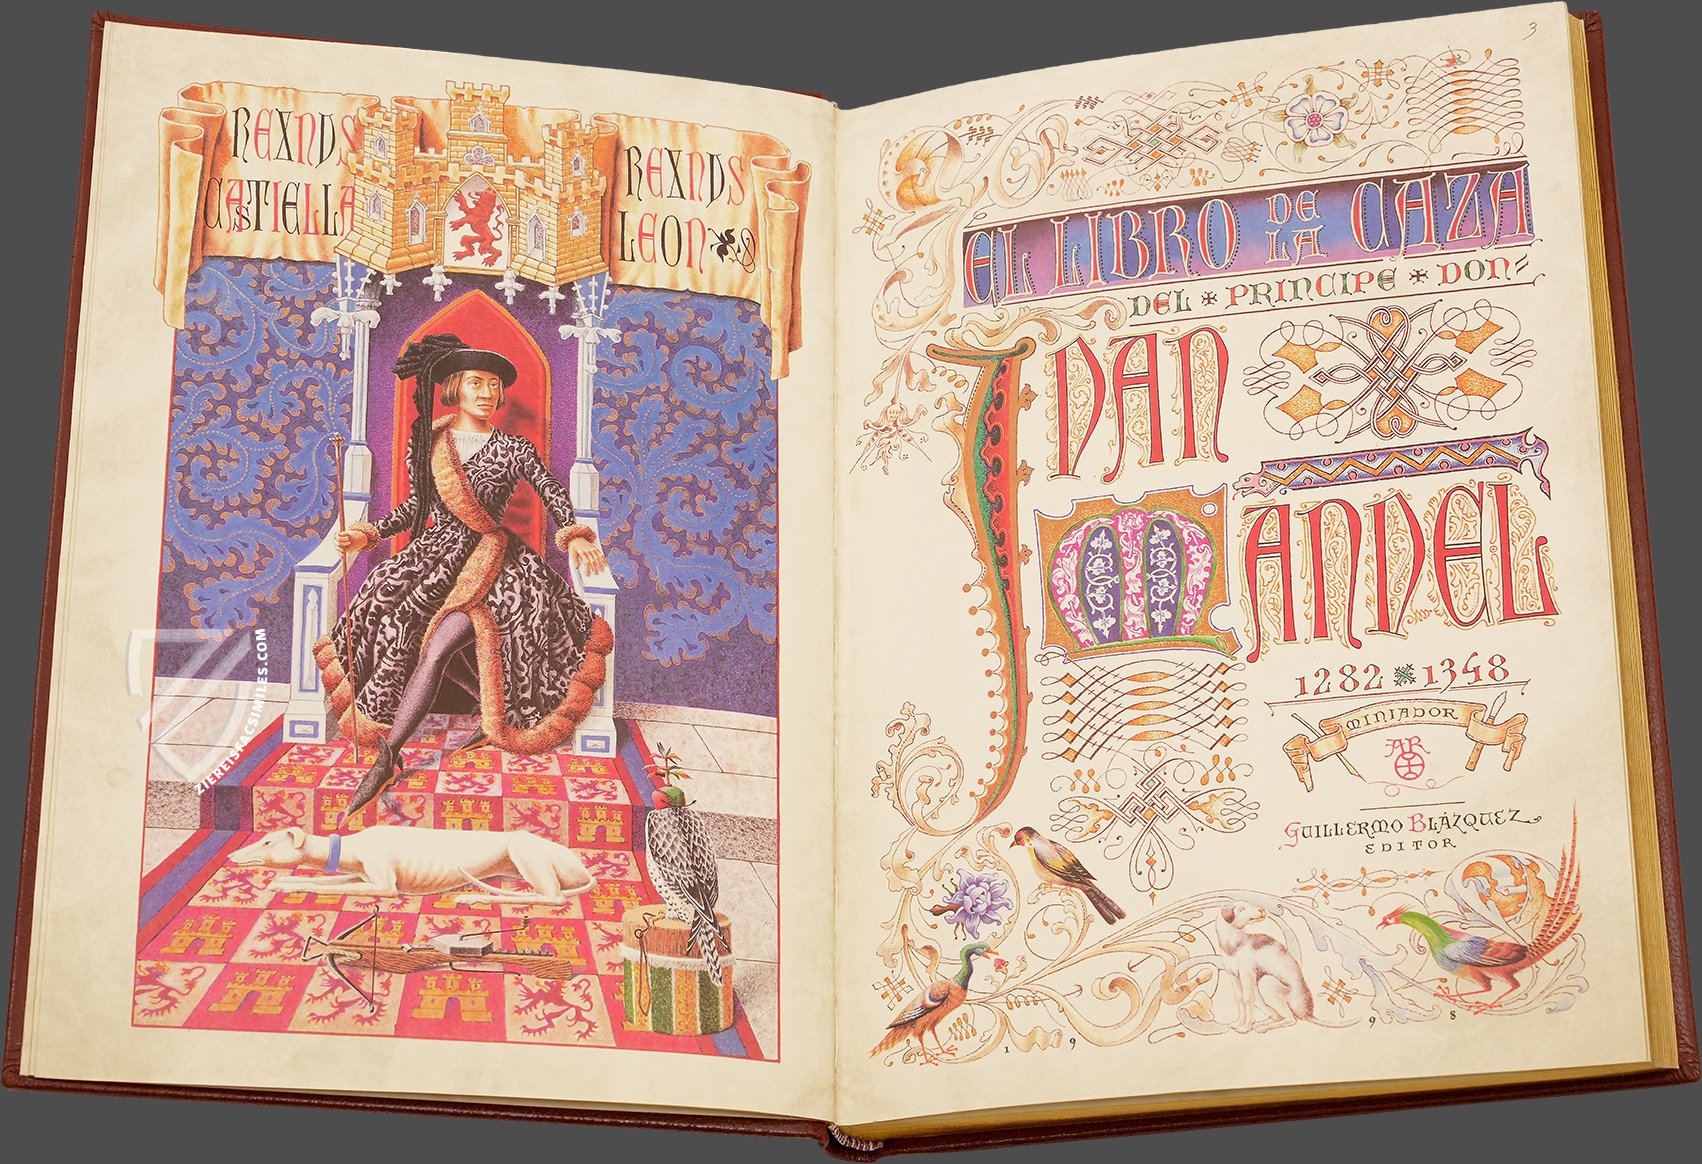 REXNVS
CASTIELLA
REXNVS
LEON
ZIEREISFACSIMILES.COM
3
EL LIBRO DE LA CAZA
DEL PRINCIPE DON=
JVAN
MANVEL
1282 1348
MINIADOR
GUILLERMO BLÁZQUEZ
EDITOR
1 9 9 8